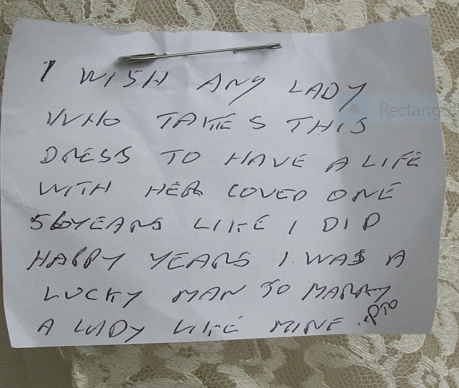 I WISH ANY LADY
WHO TAKES THIS
DRESS TO HAVE A LIFE
WITH HER LOVED ONE
56YEARS LIKE I DID
HAPPY YEARS I WAS A
LUCKY MAN TO MARRY
A LADY LIKE MINE. PTO
Rectang